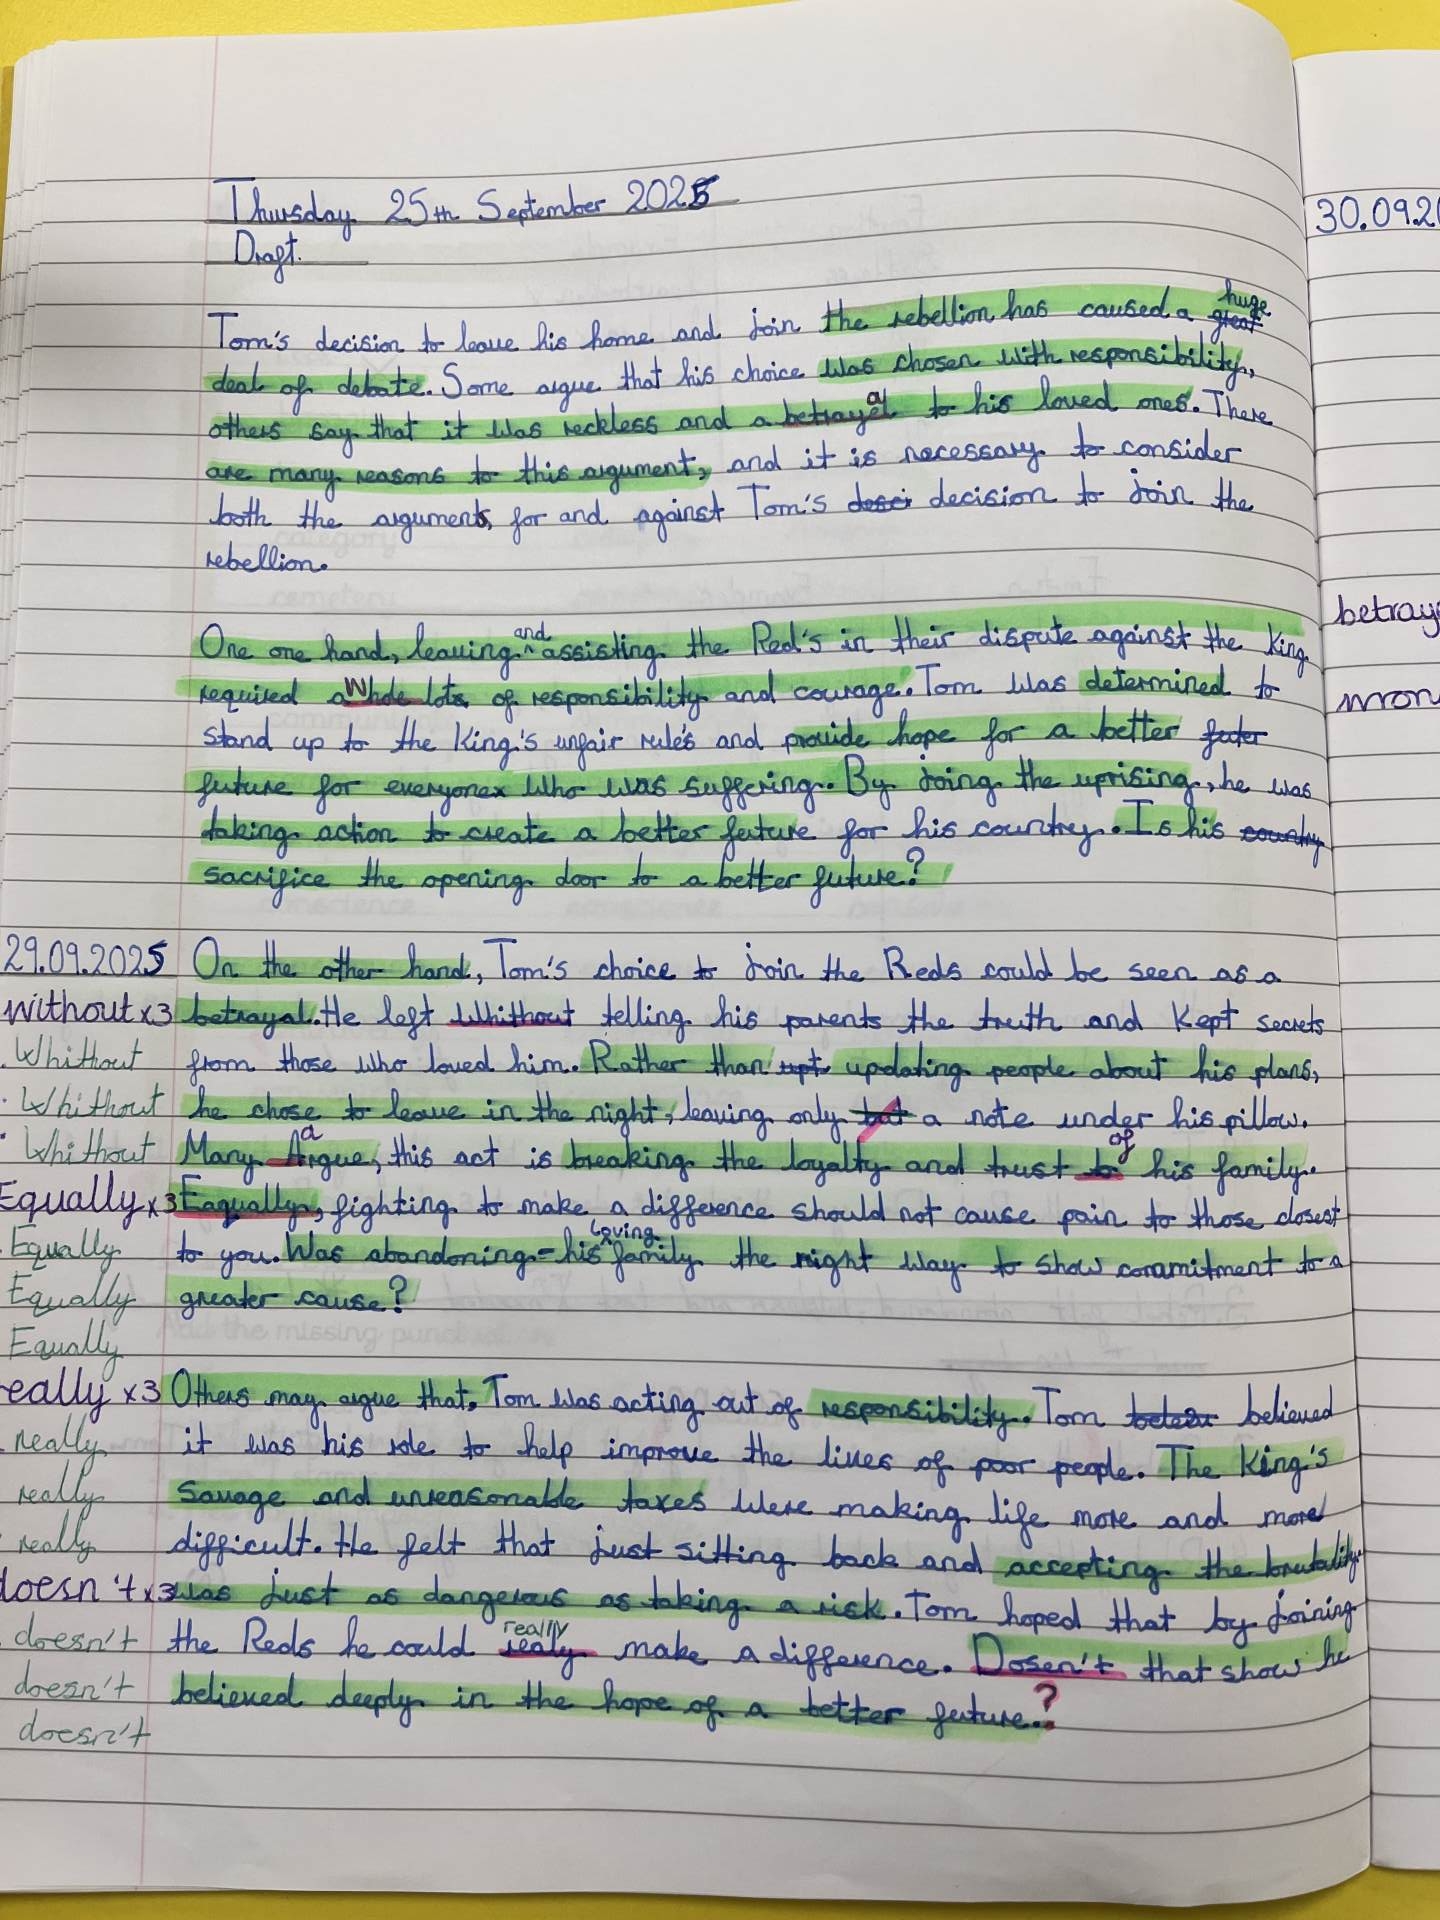 Thursday 25th September 2025
Draft.
Tom's decision to leave his home and join the rebellion has caused a great huge
deal of debate. Some argue that his choice was chosen with responsibility,
others say that it was reckless and a betrayal to his loved ones. There
are many reasons to this argument, and it is necessary to consider
both the arguments, for and against Tom's desci decision to join the
rebellion.
One one hand, leaving and assisting the Red's in their dispute against the King
required a Whole lots of responsibility and courage. Tom was determined to
stand up to the King's unfair rules and provide hope for a better futer
future for everyone who was suffering. By joing the uprising, he was
taking action to create a better future for his country. Is his country
sacrifice the opening door to a better future?
29.09.2025 On the other hand, Tom's choice to join the Reds could be seen as a
without x3 betrayal. He left Whithout telling his parents the truth and kept secrets
Whithout from those who loved him. Rather than upt updating people about his plans,
Whithout he chose to leave in the night, leaving only but a note under his pillow.
Whithout Many Argue, this act is breaking the loyalty and trust to of his family.
Equally x3 Eaqually, fighting to make a difference should not cause pain to those closest
Equally to you. Was abandoning his loving family the right way to show commitment to a
Equally greater cause?
Equally
eally x3 Others may argue that, Tom was acting out of responsibility. Tom believed
really it was his role to help improve the lives of poor people. The King's
really Savage and unreasonable taxes were making life more and more
really difficult. He felt that just sitting back and accepting the brutality
doesn't x3 was just as dangerous as taking a risk. Tom hoped that by joining
doesn't the Reds he could realy really make a difference. Dosen't that show he
doesn't believed deeply in the hope of a better future?
doesn't
30.09.20
betray